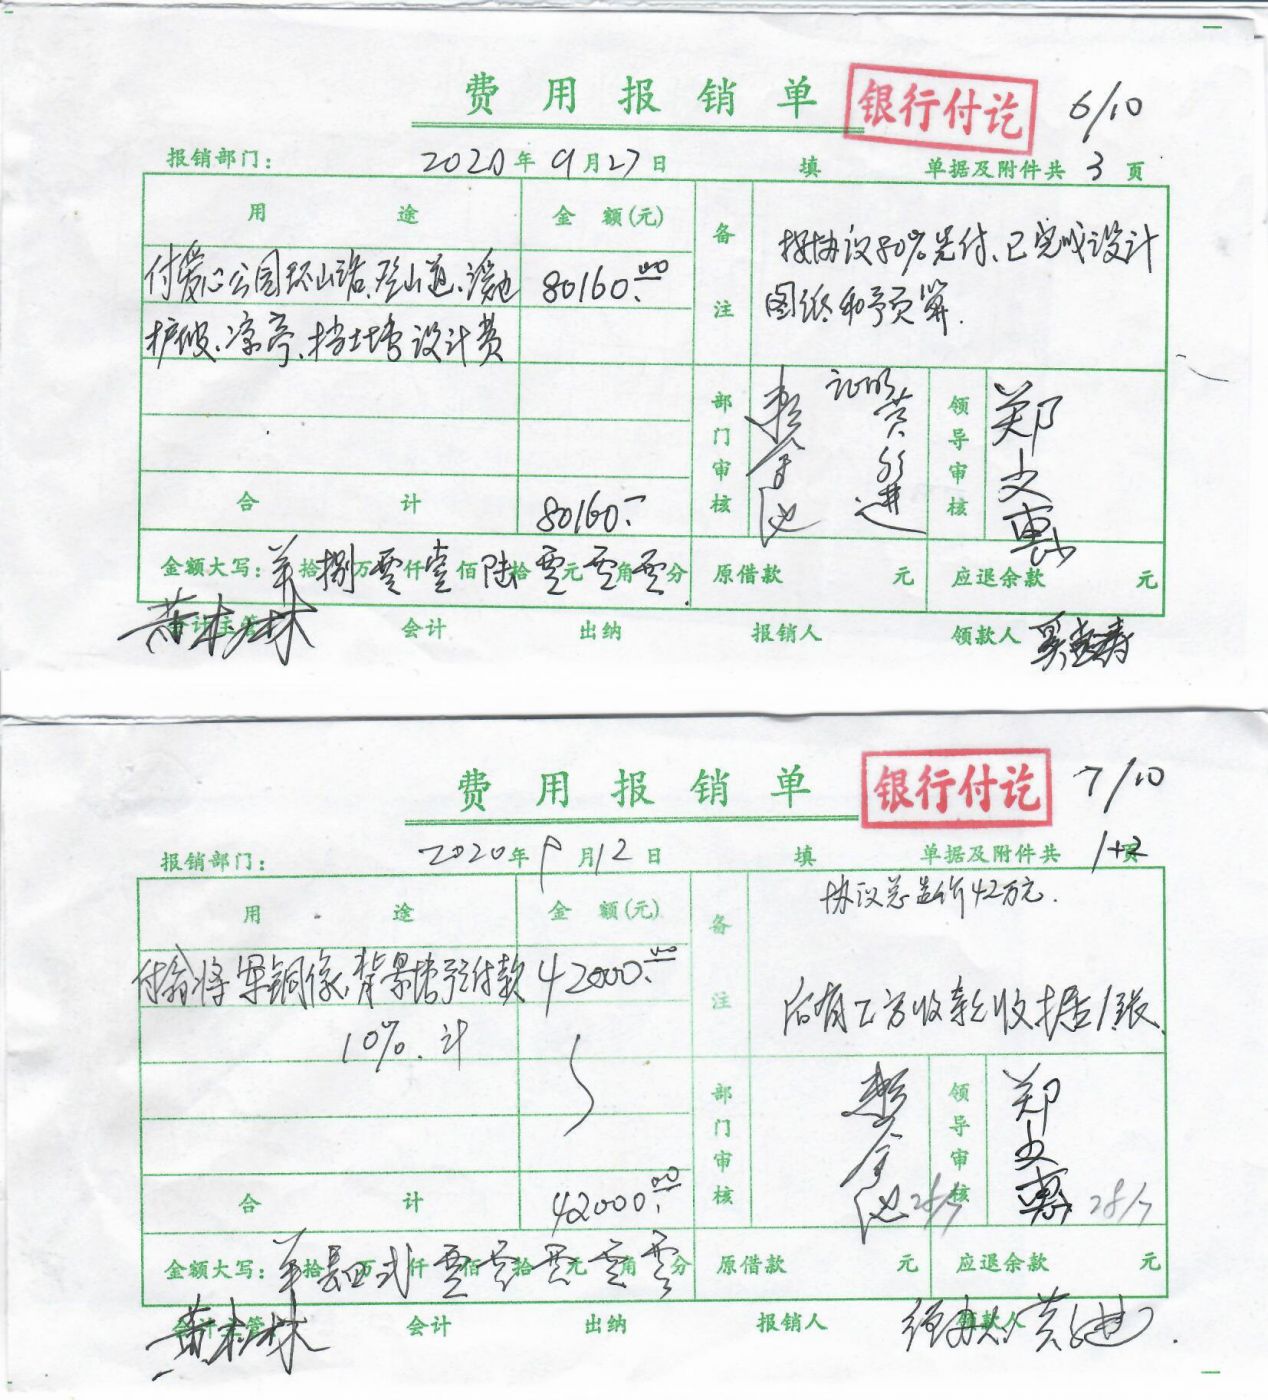 费用报销单 银行付讫 6/10
报销部门: 2020年9月27日 填 单据及附件共 3 页
用途 金额(元) 备注 按协议80%先付、已完成设计
图纸和预算.
付爱心公园环山路、登山道、
护坡、凉亭、挡土墙设计费 80160.00
部门审核 证明 领导审核 郑文惠
合计 80160.-
金额大写: 拾捌万零仟壹佰陆拾零元零角零分 原借款 元 应退余款 元
会计主管 黄木林 会计 出纳 报销人 领款人
费用报销单 银行付讫 7/10
报销部门: 2020年9月12日 填 单据及附件共 1+2 页
用途 金额(元) 备注 协议总造价42万元.
付翁将军铜像、背景墙预付款 42000.00
10%.计 后有乙方收款收据1张.
部门审核 28/9 领导审核 郑文惠 28/9
合计 42000.00
金额大写: 拾万肆仟佰零拾零元零角零分 原借款 元 应退余款 元
会计主管 黄木林 会计 出纳 报销人 领款人 经办人: